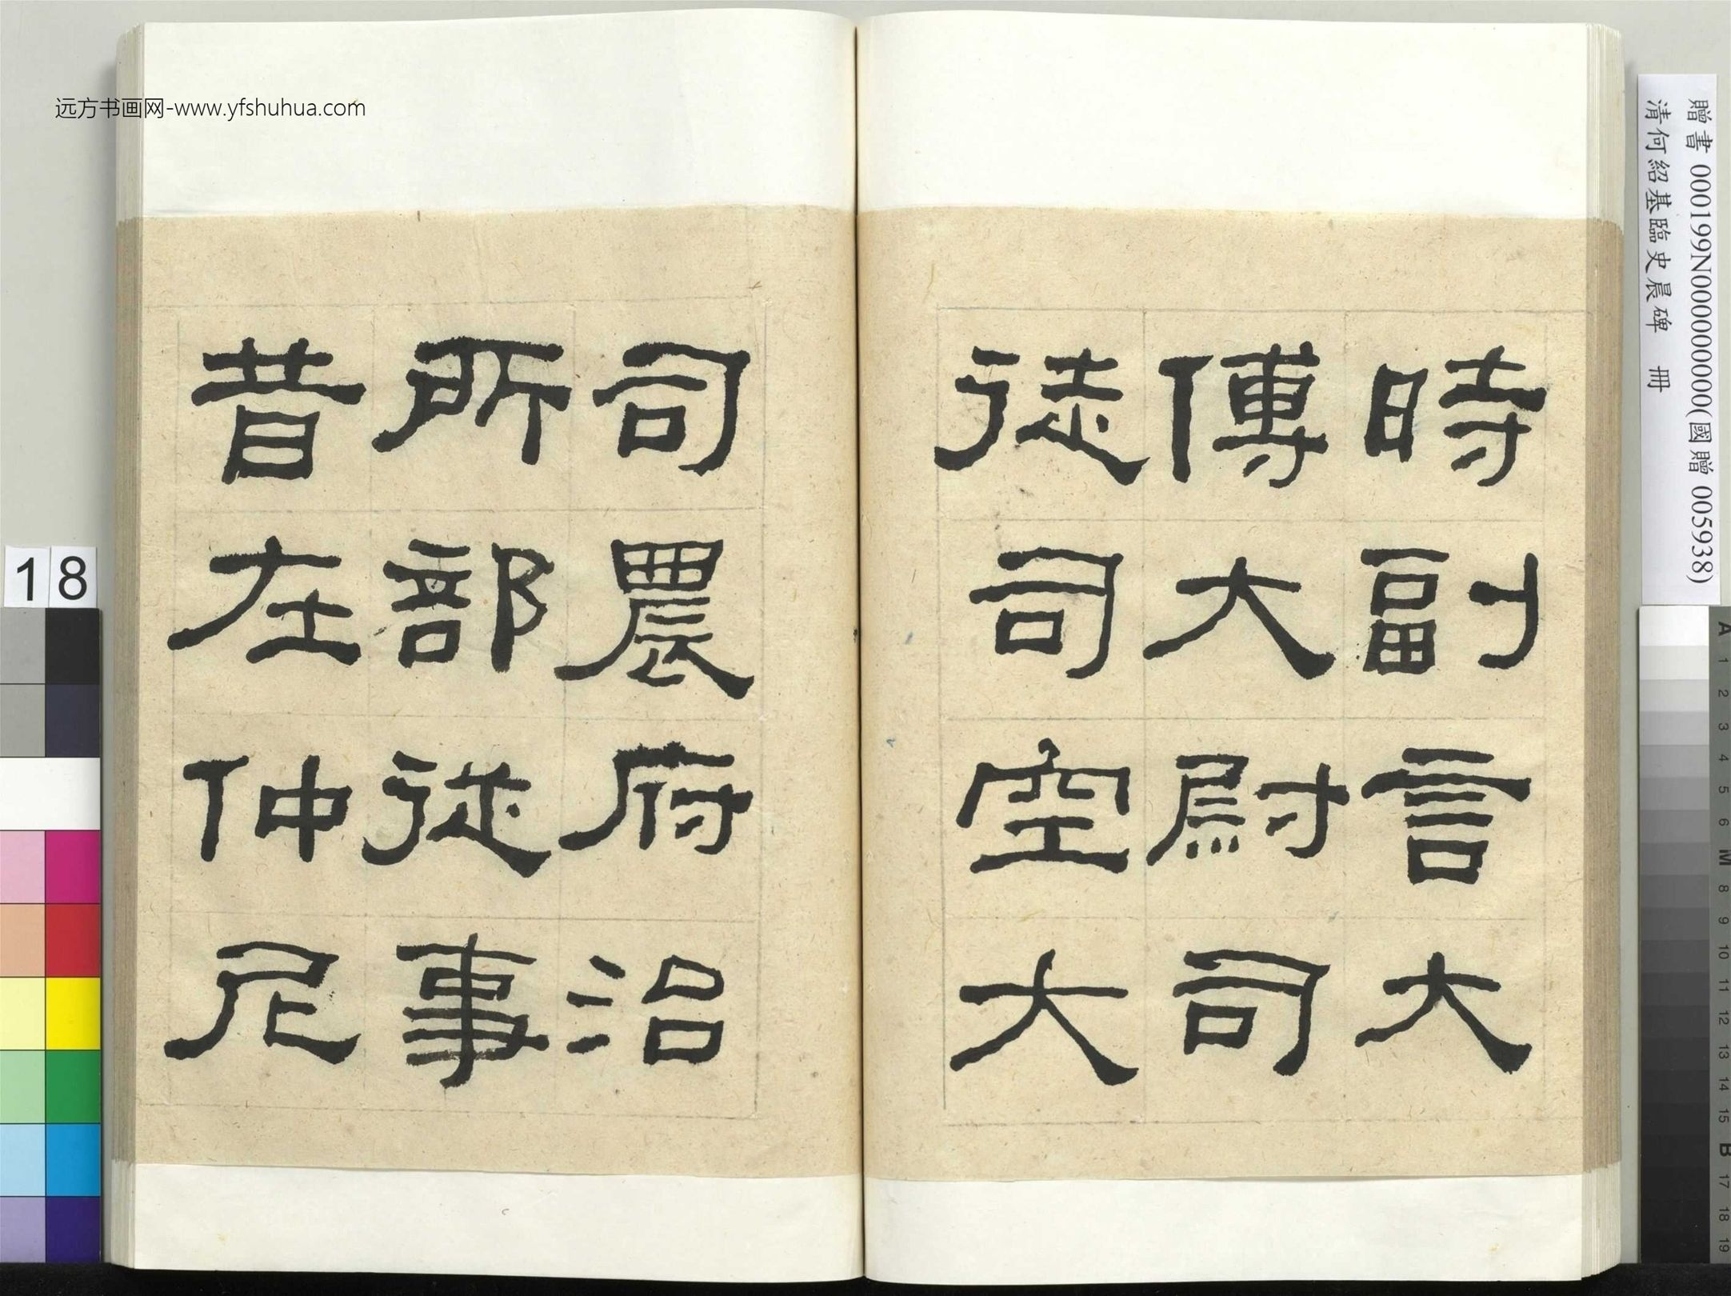 远方书画网-www.yfshuhua.com
贈書 000199N000000000(國贈 005938)
清何紹基臨史晨碑 冊
時副言大
傅大尉司
徒司空大
司農府治
所部從事
昔在仲尼
18
A 1 2 3 4 5 6 M 8 9 10 11 12 13 14 15 B 17 18 19